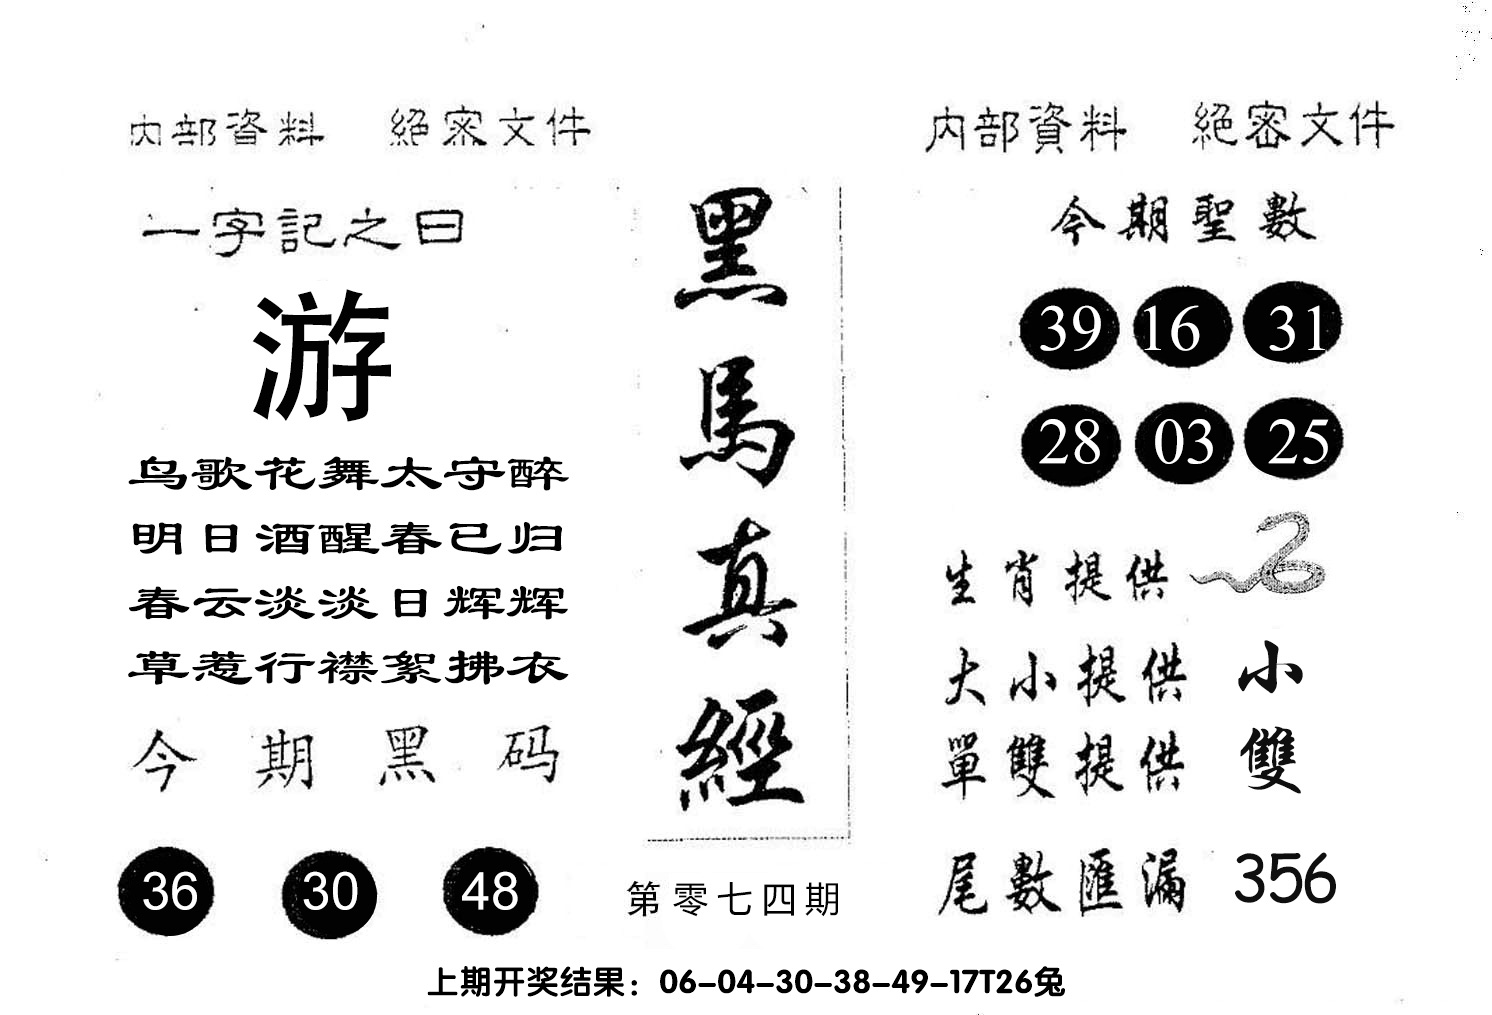 内部資料 絕密文件
一字記之曰
游
鸟歌花舞太守醉
明日酒醒春已归
春云淡淡日辉辉
草惹行襟絮拂衣
今期黑码
36 30 48
黑馬真經
第零七四期
内部資料 絕密文件
今期聖數
39 16 31
28 03 25
生肖提供
大小提供 小
單雙提供 雙
尾數匯漏 356
上期开奖结果：06-04-30-38-49-17T26兔